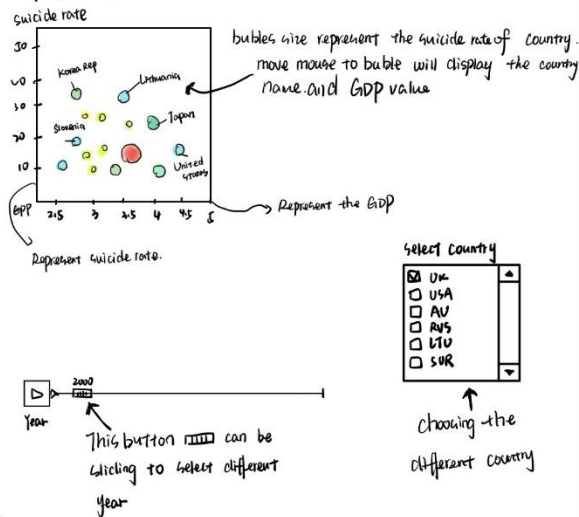 suicide rate
50
40
30
20
10
Korea Rep
Lithuania
Japan
Slovenia
United
States
GPP
2.5
3
3.5
4
4.5
5
bubles size represent the suicide rate of country.
move mouse to buble will display the country
name.and GDP value
Represent the GDP
Represent suicide rate.
select country
UK
USA
AU
RUS
LTU
SUR
choosing the
different country
2000
Year
This button can be
sliding to select different
year